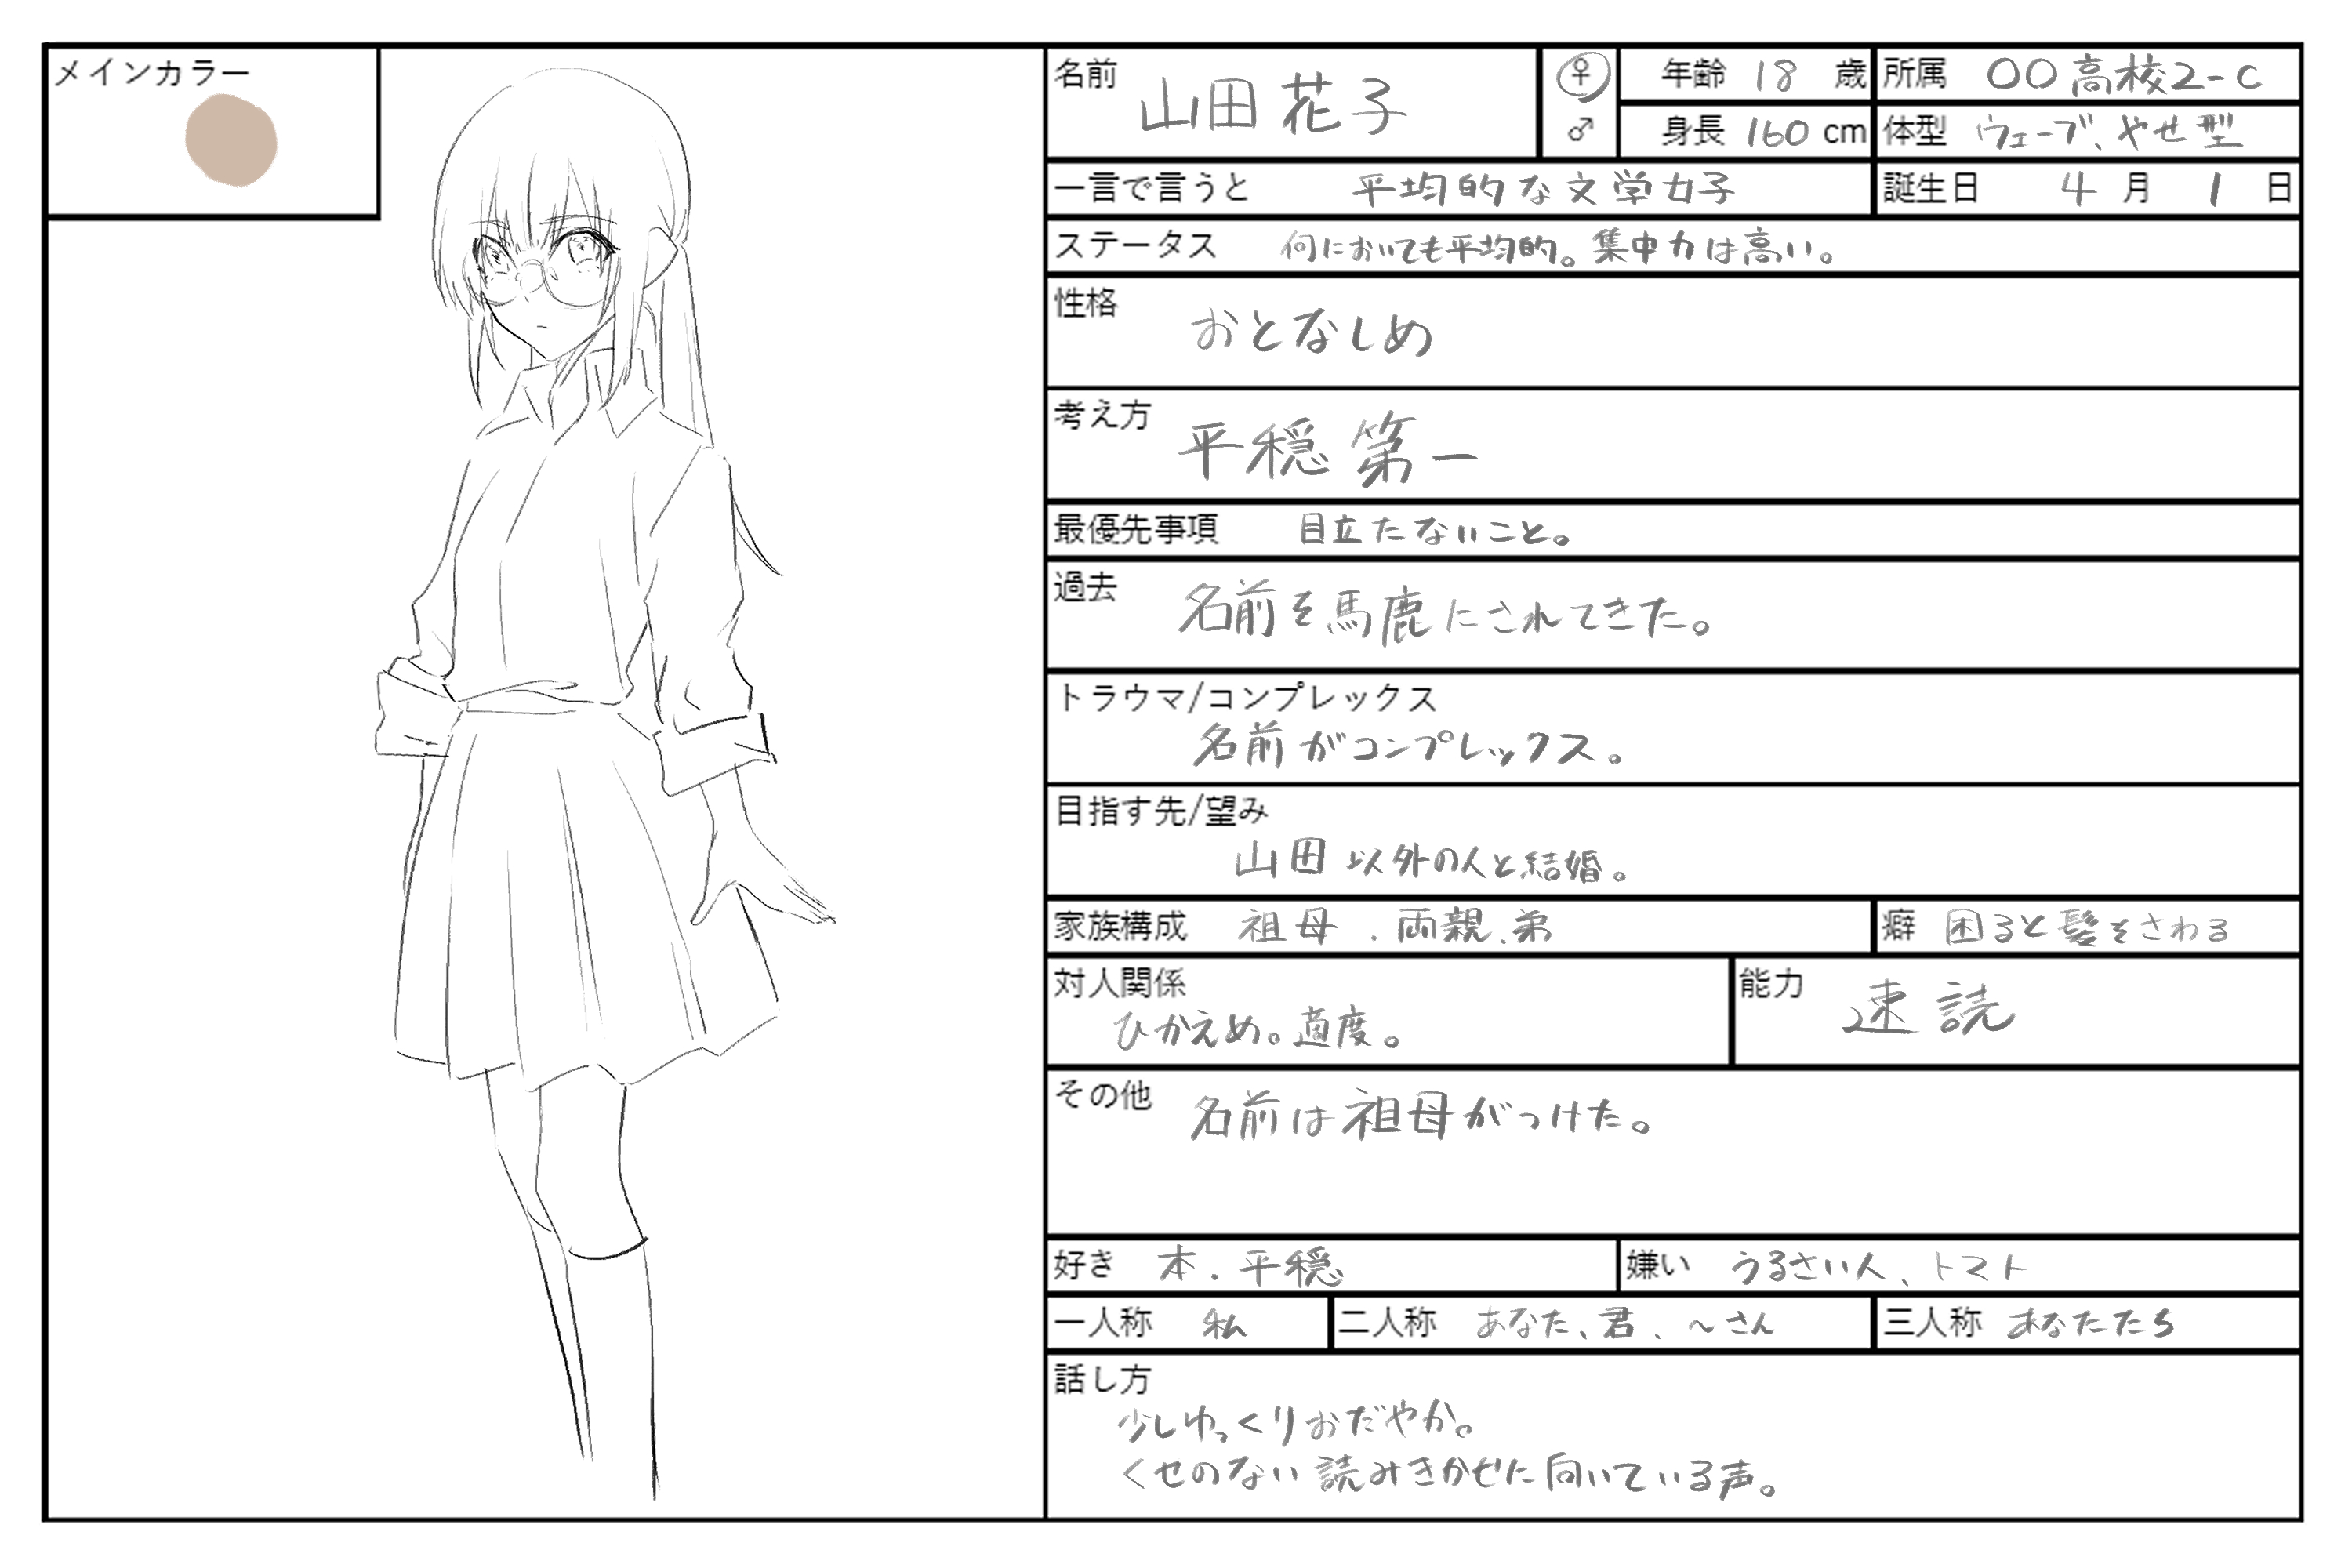 メインカラー
名前 山田花子
♀
♂
年齢 18 歳
所属 〇〇高校2-C
身長 160 cm
体型 ウェーブ、やせ型
一言で言うと 平均的な文学女子
誕生日 4月1日
ステータス 何においても平均的。集中力は高い。
性格 おとなしめ
考え方 平穏第一
最優先事項 目立たないこと。
過去 名前を馬鹿にされてきた。
トラウマ/コンプレックス
名前がコンプレックス。
目指す先/望み
山田以外の人と結婚。
家族構成 祖母.両親.弟
癖 困ると髪をさわる
対人関係
ひかえめ。適度。
能力 速読
その他 名前は祖母がつけた。
好き 本.平穏
嫌い うるさい人、トマト
一人称 私
二人称 あなた、君、〜さん
三人称 あなたたち
話し方
少しゆっくりおだやか。
くせのない読みきかせに向いている声。